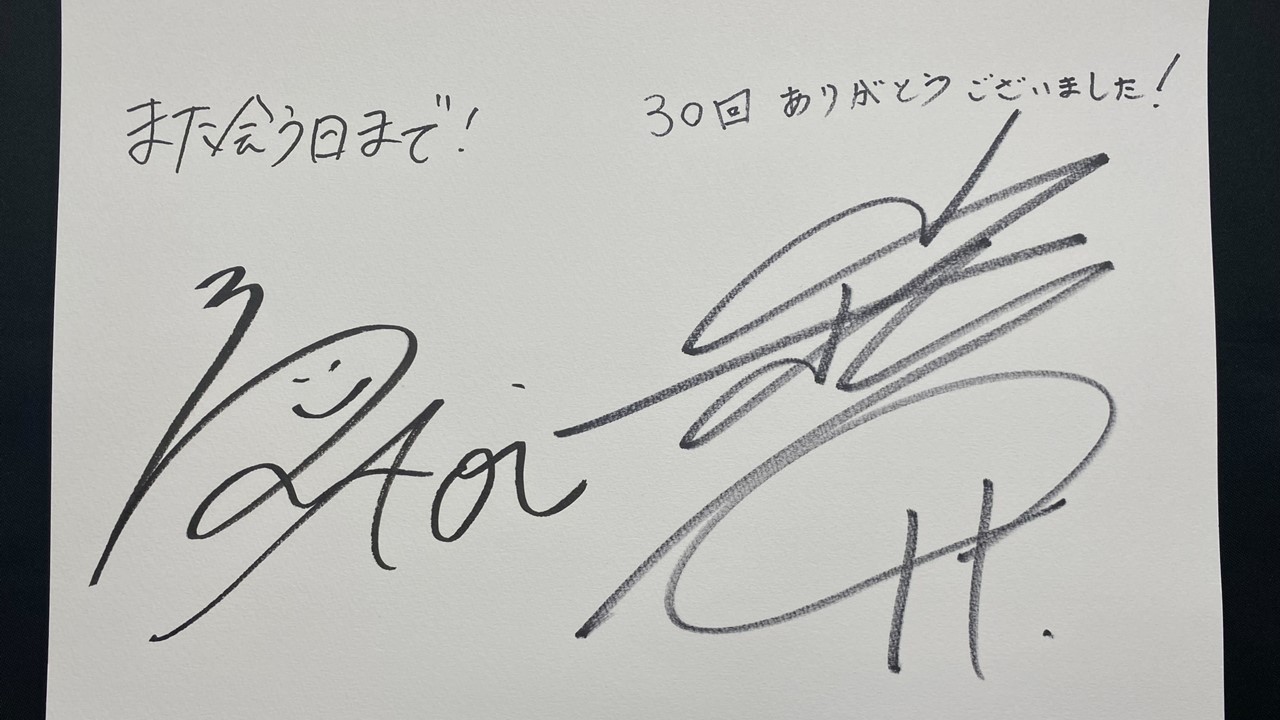 また会う日まで!
30回 ありがとうございました!
Aoi
H.